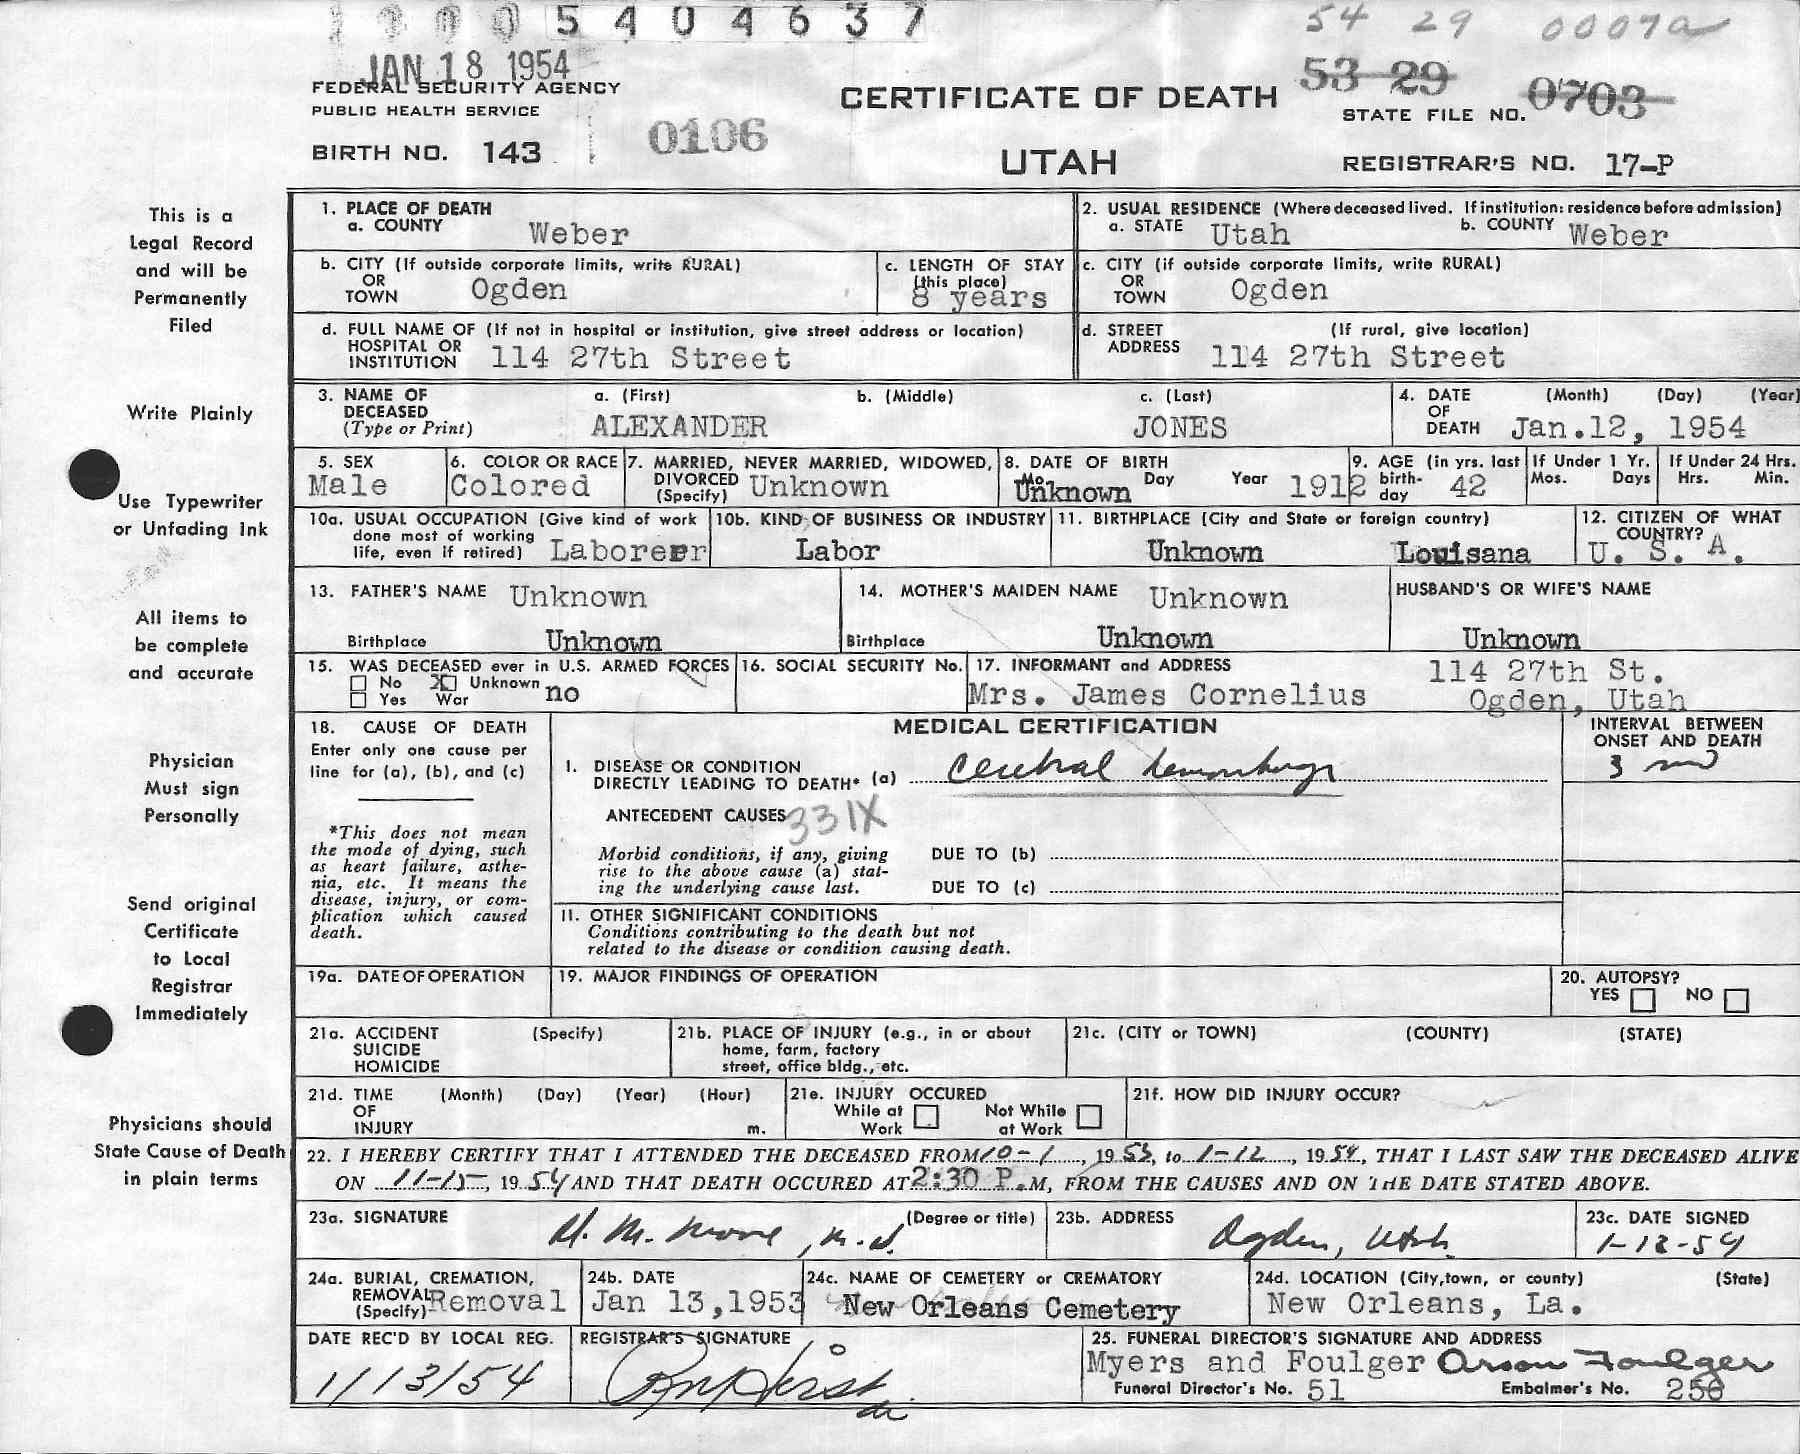 1 0 0 0 5 4 0 4 6 3 7
54 29 0007a
JAN 18 1954
53 29 0703
FEDERAL SECURITY AGENCY
PUBLIC HEALTH SERVICE
CERTIFICATE OF DEATH
STATE FILE NO.
BIRTH NO. 143
0106
UTAH
REGISTRAR'S NO. 17-P
This is a
Legal Record
and will be
Permanently
Filed
Write Plainly
Use Typewriter
or Unfading Ink
All items to
be complete
and accurate
Physician
Must sign
Personally
Send original
Certificate
to Local
Registrar
Immediately
Physicians should
State Cause of Death
in plain terms
1. PLACE OF DEATH
a. COUNTY Weber
2. USUAL RESIDENCE (Where deceased lived. If institution: residence before admission)
a. STATE Utah b. COUNTY Weber
b. CITY (If outside corporate limits, write RURAL)
OR
TOWN Ogden
c. LENGTH OF STAY
(this place)
8 years
c. CITY (if outside corporate limits, write RURAL)
OR
TOWN Ogden
d. FULL NAME OF (If not in hospital or institution, give street address or location)
HOSPITAL OR
INSTITUTION 114 27th Street
d. STREET (If rural, give location)
ADDRESS 114 27th Street
3. NAME OF DECEASED (Type or Print)
a. (First) b. (Middle) c. (Last)
ALEXANDER JONES
4. DATE OF DEATH (Month) (Day) (Year)
Jan.12, 1954
5. SEX
Male
6. COLOR OR RACE
Colored
7. MARRIED, NEVER MARRIED, WIDOWED,
DIVORCED
(Specify) Unknown
8. DATE OF BIRTH
Mo. Day Year
Unknown 1912
9. AGE (in yrs. last
birth-
day 42
If Under 1 Yr.
Mos. Days
If Under 24 Hrs.
Hrs. Min.
10a. USUAL OCCUPATION (Give kind of work
done most of working
life, even if retired) Laborer
10b. KIND OF BUSINESS OR INDUSTRY
Labor
11. BIRTHPLACE (City and State or foreign country)
Unknown Louisana
12. CITIZEN OF WHAT
COUNTRY?
U. S. A.
13. FATHER'S NAME Unknown
Birthplace Unknown
14. MOTHER'S MAIDEN NAME Unknown
Birthplace Unknown
HUSBAND'S OR WIFE'S NAME
Unknown
15. WAS DECEASED ever in U.S. ARMED FORCES
No X Unknown no
Yes War
16. SOCIAL SECURITY No.
17. INFORMANT and ADDRESS
Mrs. James Cornelius
114 27th St.
Ogden, Utah
18. CAUSE OF DEATH
Enter only one cause per
line for (a), (b), and (c)
*This does not mean
the mode of dying, such
as heart failure, asthe-
nia, etc. It means the
disease, injury, or com-
plication which caused
death.
MEDICAL CERTIFICATION
I. DISEASE OR CONDITION
DIRECTLY LEADING TO DEATH* (a) Cerebral hemorrhage
INTERVAL BETWEEN
ONSET AND DEATH
3
ANTECEDENT CAUSES 331X
Morbid conditions, if any, giving
rise to the above cause (a) stat-
ing the underlying cause last.
DUE TO (b)
DUE TO (c)
II. OTHER SIGNIFICANT CONDITIONS
Conditions contributing to the death but not
related to the disease or condition causing death.
19a. DATE OF OPERATION
19. MAJOR FINDINGS OF OPERATION
20. AUTOPSY?
YES NO
21a. ACCIDENT (Specify)
SUICIDE
HOMICIDE
21b. PLACE OF INJURY (e.g., in or about
home, farm, factory
street, office bldg., etc.
21c. (CITY or TOWN) (COUNTY) (STATE)
21d. TIME (Month) (Day) (Year) (Hour)
OF
INJURY m.
21e. INJURY OCCURED
While at Work Not While at Work
21f. HOW DID INJURY OCCUR?
22. I HEREBY CERTIFY THAT I ATTENDED THE DECEASED FROM 10-1, 1953, to 1-12, 1954, THAT I LAST SAW THE DECEASED ALIVE
ON 11-15, 1954 AND THAT DEATH OCCURED AT 2:30 P.M, FROM THE CAUSES AND ON THE DATE STATED ABOVE.
23a. SIGNATURE (Degree or title)
M.D.
23b. ADDRESS
Ogden, Utah
23c. DATE SIGNED
1-12-54
24a. BURIAL, CREMATION,
REMOVAL
(Specify) Removal
24b. DATE
Jan 13,1953
24c. NAME OF CEMETERY or CREMATORY
New Orleans Cemetery
24d. LOCATION (City,town, or county) (State)
New Orleans, La.
DATE REC'D BY LOCAL REG.
1/13/54
REGISTRAR'S SIGNATURE
25. FUNERAL DIRECTOR'S SIGNATURE AND ADDRESS
Myers and Foulger Orson Foulger
Funeral Director's No. 51 Embalmer's No. 256